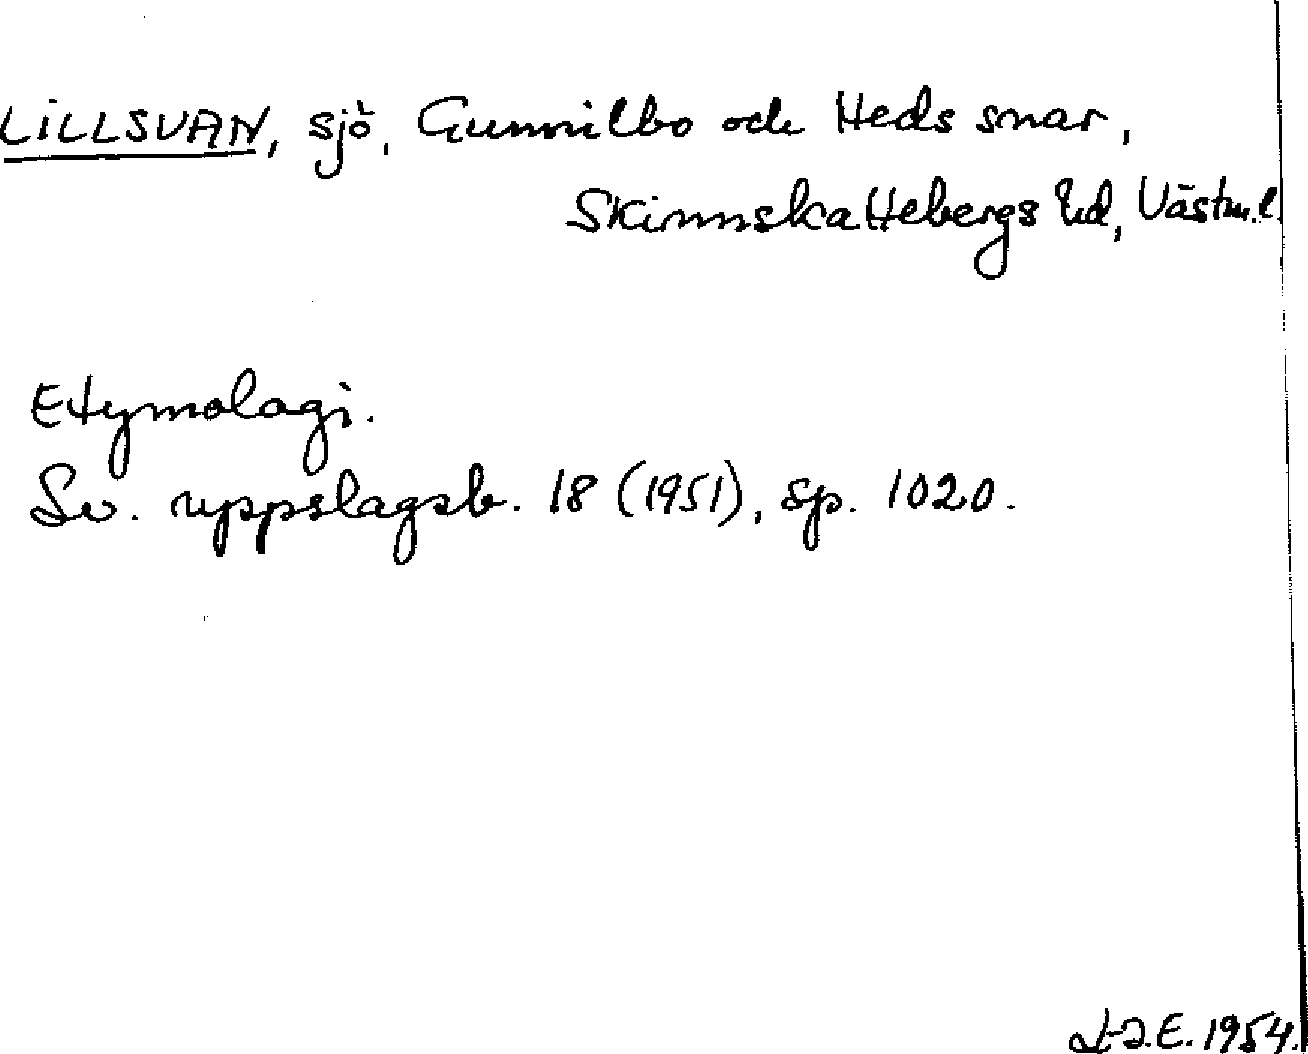 LILLSVAN, sjö, Gunnilbo och Heds snar,
Skinnskattebergs hd, Västm.l.
Etymologi.
Sv. uppslagsb. 18 (1951), sp. 1020.
E. 1954.